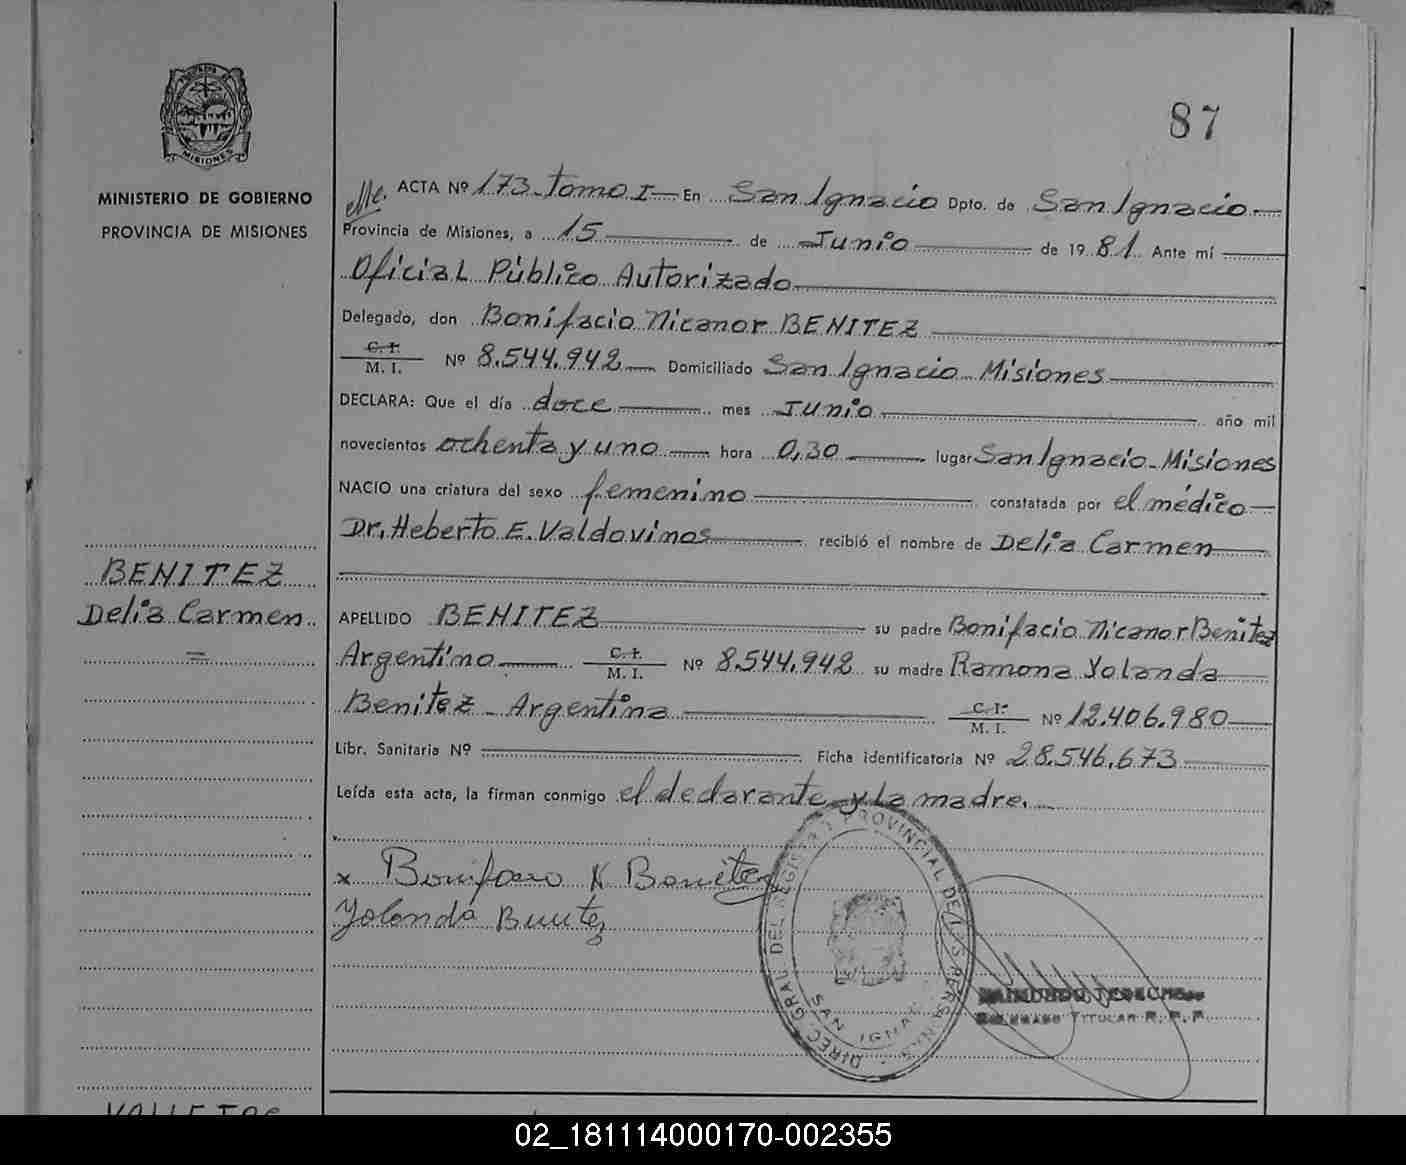 87
MISIONES
MINISTERIO DE GOBIERNO
PROVINCIA DE MISIONES
ACTA Nº 173 - Tomo I — En San Ignacio Dpto. de San Ignacio —
Provincia de Misiones, a 15 de Junio de 1981 Ante mí
Oficial Público Autorizado
Delegado, don Bonifacio Nicanor BENITEZ
C. I.
M. I. Nº 8.544.942 Domiciliado San Ignacio - Misiones
DECLARA: Que el día doce mes Junio año mil
novecientos ochenta y uno hora 0,30 lugar San Ignacio - Misiones
NACIO una criatura del sexo femenino constatada por el médico
Dr. Heberto E. Valdovinos recibió el nombre de Delia Carmen
BENITEZ
Delia Carmen
=
APELLIDO BENITEZ su padre Bonifacio Nicanor Benitez
Argentino C. I. M. I. Nº 8.544.942 su madre Ramona Yolanda
Benitez - Argentina C. I. M. I. Nº 12.406.980
Libr. Sanitaria Nº Ficha identificatoria Nº 28.546.673
Leída esta acta, la firman conmigo el declarante y la madre.
x Bonifacio N Benitez
Yolanda Benitez
DIREC. GRAL DEL REGISTRO PROVINCIAL DE LAS PERSONAS
SAN IGNACIO
RAIMUNDO
DELEGADO TITULAR R. P. P.
02_181114000170-002355